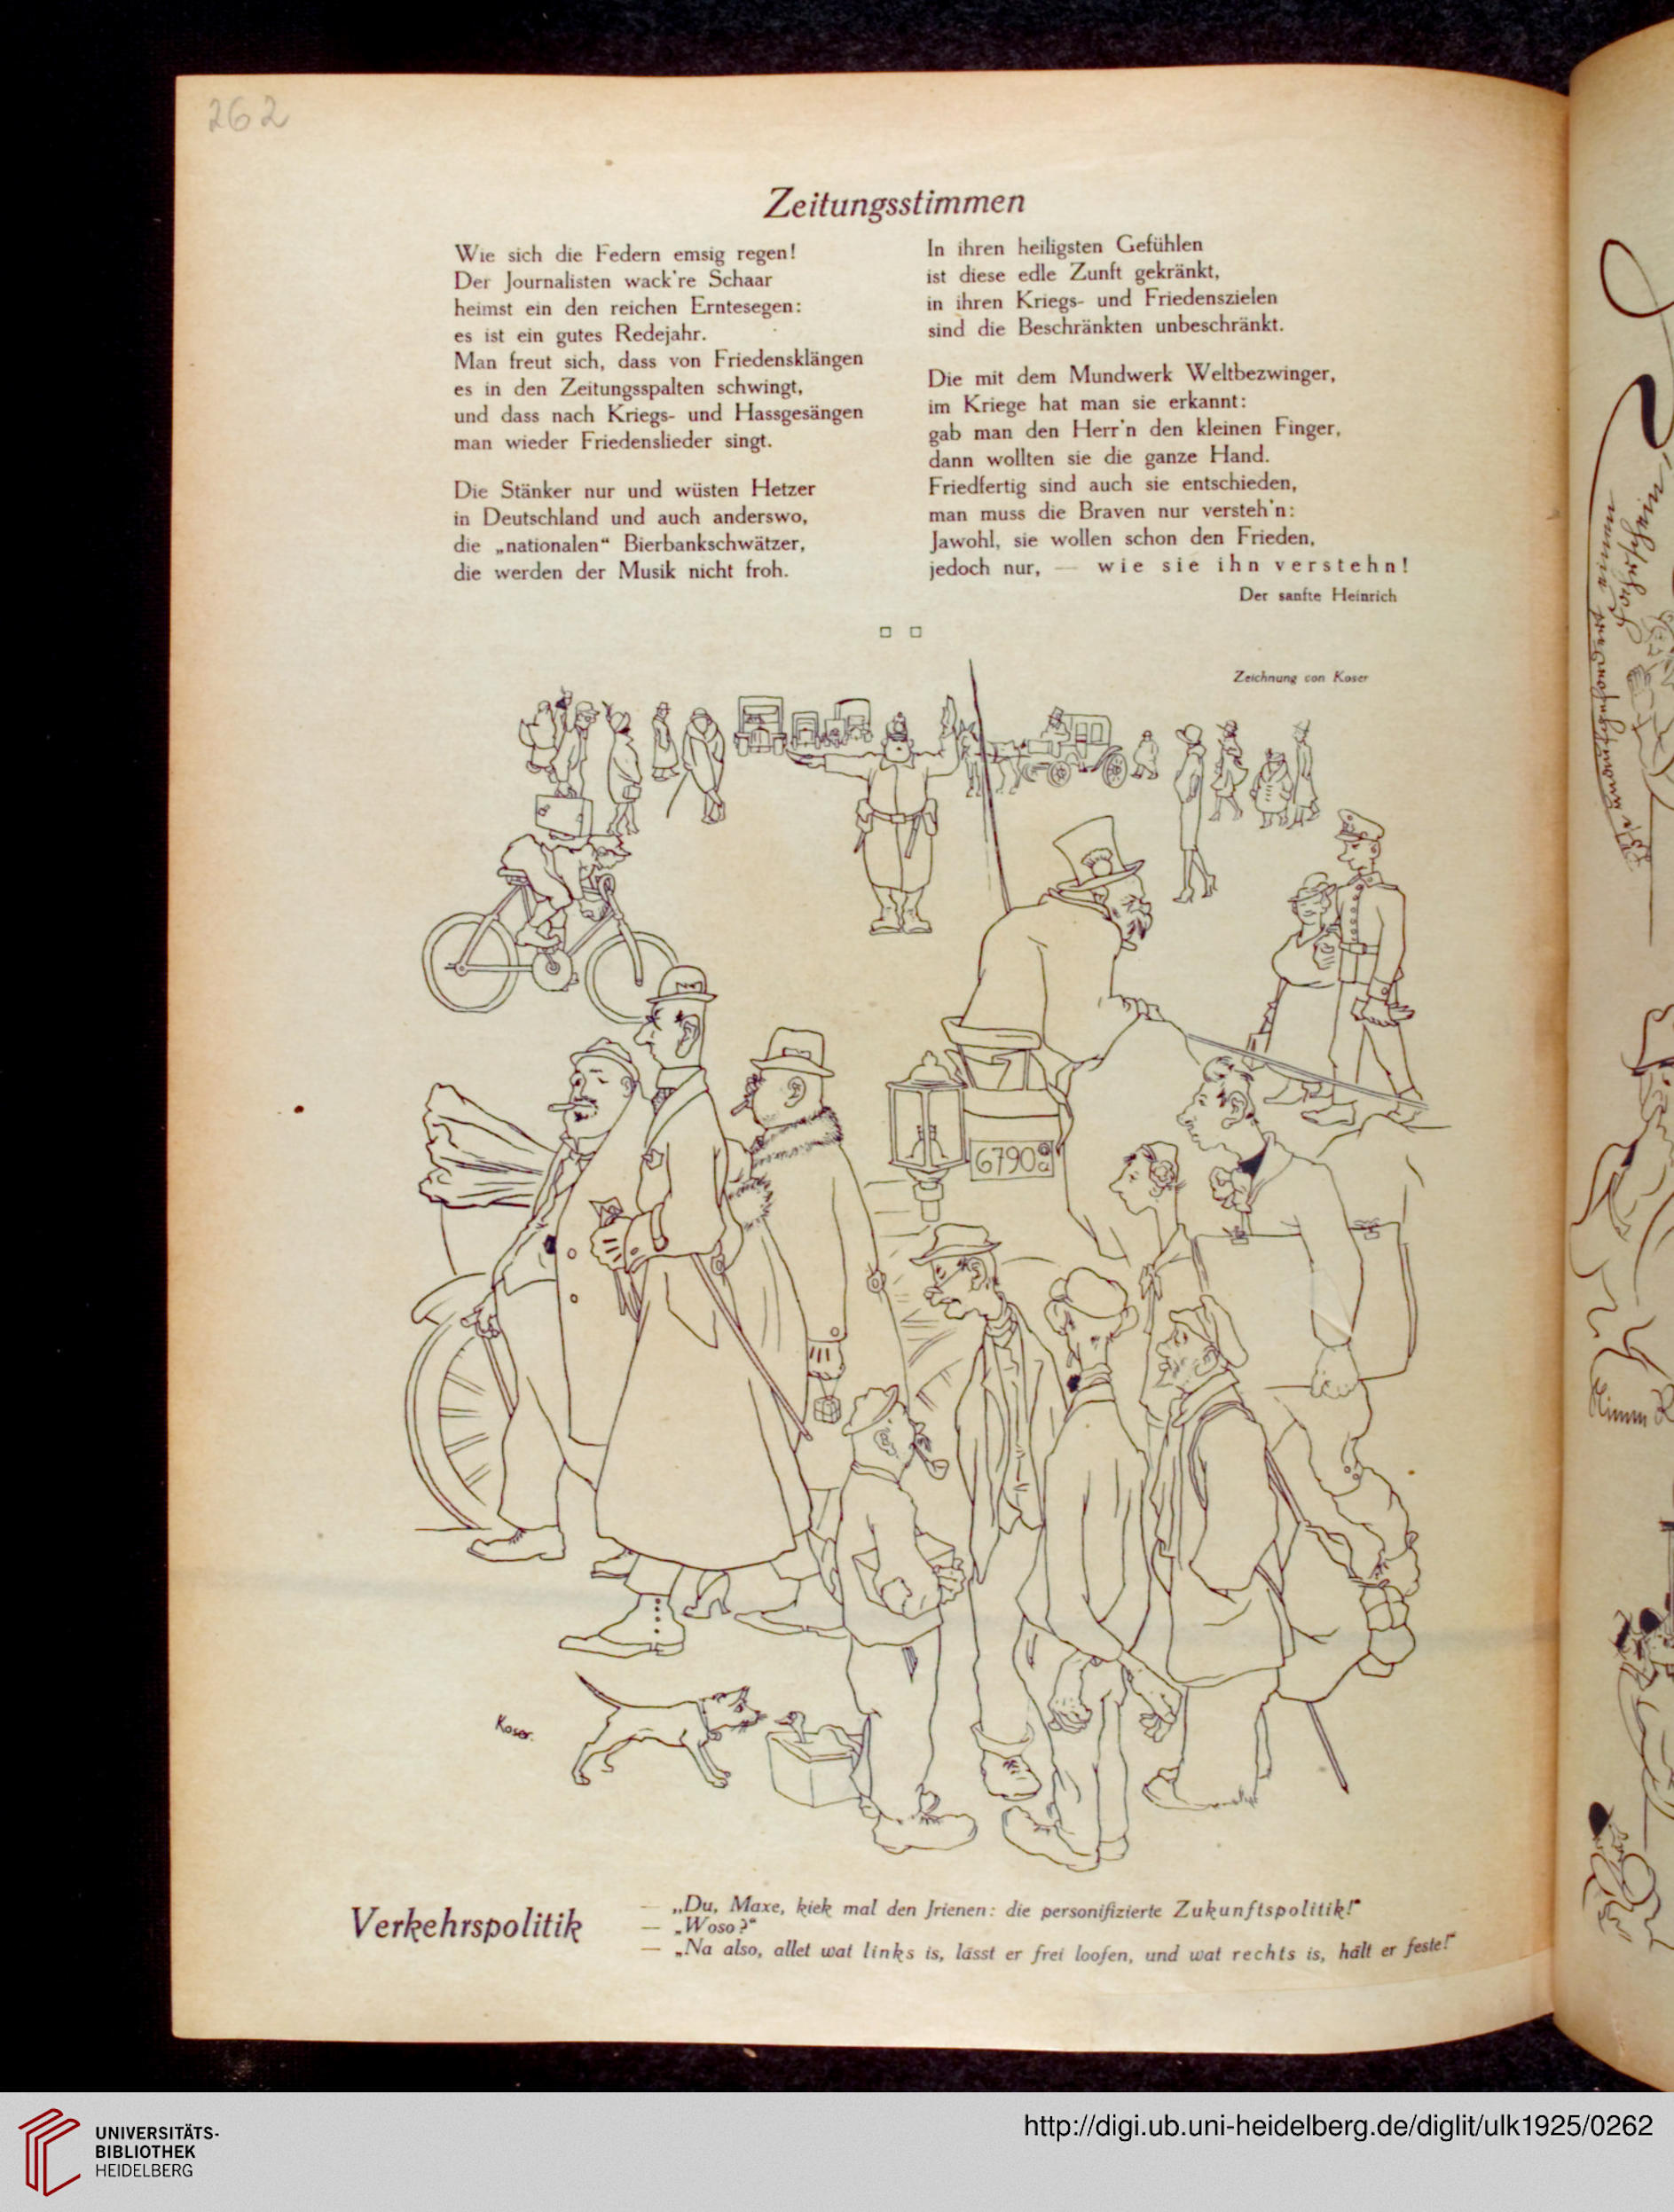 262
Zeitungsstimmen
Wie sich die Federn emsig regen!
Der Journalisten wack're Schaar
heimst ein den reichen Erntesegen:
es ist ein gutes Redejahr.
Man freut sich, dass von Friedensklängen
es in den Zeitungsspalten schwingt,
und dass nach Kriegs- und Hassgesängen
man wieder Friedenslieder singt.
Die Stänker nur und wüsten Hetzer
in Deutschland und auch anderswo,
die „nationalen“ Bierbankschwätzer,
die werden der Musik nicht froh.
In ihren heiligsten Gefühlen
ist diese edle Zunft gekränkt,
in ihren Kriegs- und Friedenszielen
sind die Beschränkten unbeschränkt.
Die mit dem Mundwerk Weltbezwinger,
im Kriege hat man sie erkannt:
gab man den Herr'n den kleinen Finger,
dann wollten sie die ganze Hand.
Friedfertig sind auch sie entschieden,
man muss die Braven nur versteh'n:
Jawohl, sie wollen schon den Frieden,
jedoch nur, — wie sie ihn verstehn!
Der sanfte Heinrich
Zeichnung von Koser
6790
Koser.
Verkehrspolitik
— „Du, Maxe, kiek mal den Jrienen: die personifizierte Zukunftspolitik!“
— „Woso?“
— „Na also, allet wat links is, lässt er frei loofen, und wat rechts is, hält er feste!“
UNIVERSITÄTS-
BIBLIOTHEK
HEIDELBERG
http://digi.ub.uni-heidelberg.de/diglit/ulk1925/0262